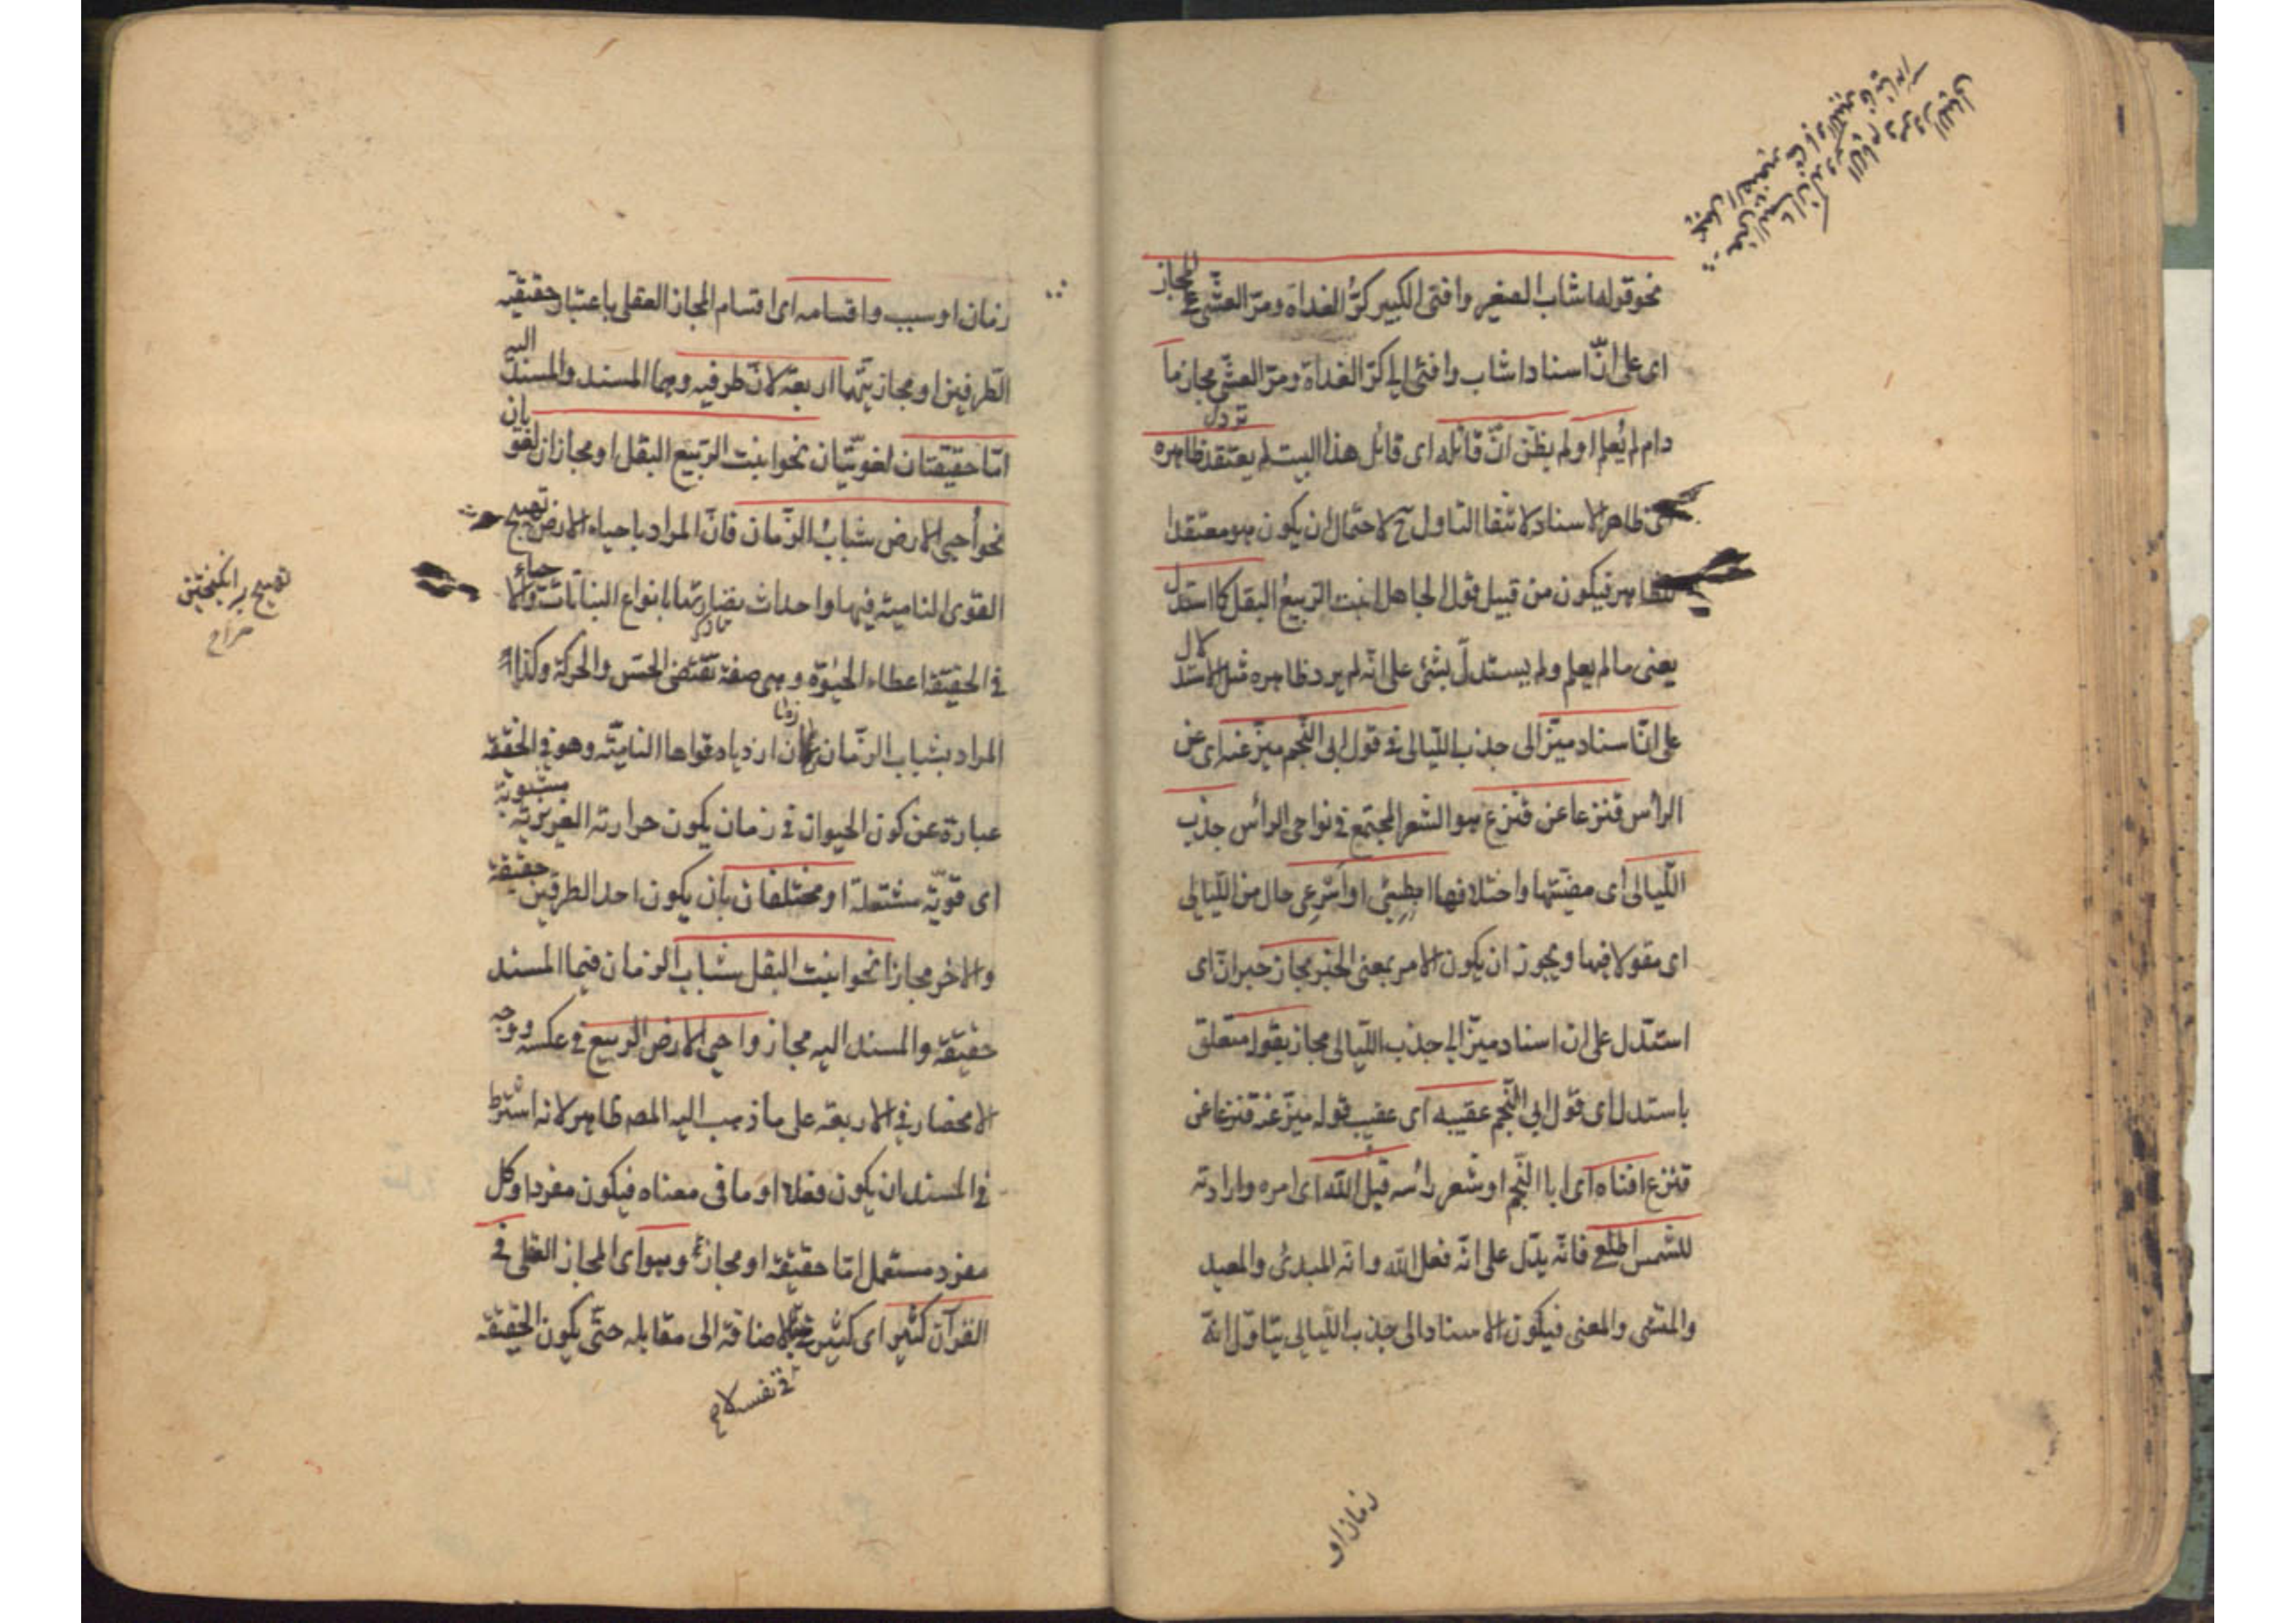 نحو قوله اشاب الصغير وافنى الكبير كرّ الغداة ومرّ العشي على المجاز
اى على انّ اسناد اشاب وافنى الى كرّ الغداة ومرّ العشي مجاز ما
دام لم يُعلم او لم يظن انّ قائله اى قائل هذا البيت لم يعتقد ظاهره
اى ظاهر الاسناد لانتفاء التاول ح لاحتمال ان يكون هو معتقدا
للظاهر فيكون من قبيل قول الجاهل انبت الربيعُ البقل كما استدل
يعنى ما لم يعلم ولم يستدلّ بشئ على انّه لم يرد ظاهره مثل الاستدلال
على انّ اسناد ميّز الى جذب الليالى فى قول ابى النّجم ميّز عنه اى عن
الرأس قنزعا عن قنزع هو الشعر المجتمع فى نواحى الرأس جذب
اللّيالى اى مضيّها واختلافها ابطيئى او اسرعى حال من اللّيالى
اى مقولا فيها ويجوز ان يكون الامر بمعنى الخبر مجاز خبر انّ اى
استدل على ان اسناد ميّز الى جذب اللّيالى مجاز بقوله متعلق
باستدل اى قول ابى النّجم عقيبه اى عقيب قوله ميّز عنه قنزعا عن
قنزع افناه اى ابا النّجم او شعر رأسه قيل اللّه اى امره وارادته
للشمس اطلعى فانّه يدّل على انّه فعل اللّه وانّه المبدئ والمعيد
والمنشى والمفنى فيكون الاسناد الى جذب اللّيالى بتاوّل انّه
زمان او
زمان او سبب واقسامه اى اقسام المجاز العقلى باعتبار حقيقية
الطّرفين او مجازيّتهما اربعة لانّ طرفيه وهما المسند والمسند اليه
امّا حقيقتان لغويّتان نحو انبت الرّبيع البقل او مجازان لغويان
نحو أحيى الارض شبابُ الزّمان فانّ المراد باحياء الارض تهييج
القوى النامية فيها واحداث نضارتها بانواع النباتات والاحياء
فى الحقيقة اعطاء الحيٰوة وهى صفة تقتضى الحسّ والحركة وكذا
المراد بشباب الزّمان زمان ازدياد قواها الناميّة وهو فى الحقيقة
عبارة عن كون الحيوان فى زمان يكون حرارته الغريزيّة مشبوبة
اى قويّة مشتعلة او مختلفان بان يكون احد الطرفين حقيقة
والاخر مجازا نحو انبت البقل شباب الزمان فيما المسند
حقيقة والمسند اليه مجاز واحيى الارض الربيع فى عكسه ووجه
الانحصار فى الاربعة على ما ذهب اليه المصـ ظاهر لانه اشترط
فى المسند ان يكون فعلا او ما فى معناه فيكون مفردا وكل
مفرد مستعمل امّا حقيقة او مجاز وهو اى المجاز العقلى فى
القرآن كثير اى كثير فى نفسه لا بالاضافة الى مقابله حتّى يكون الحقيقة
تهييج برانگيختن
صراح